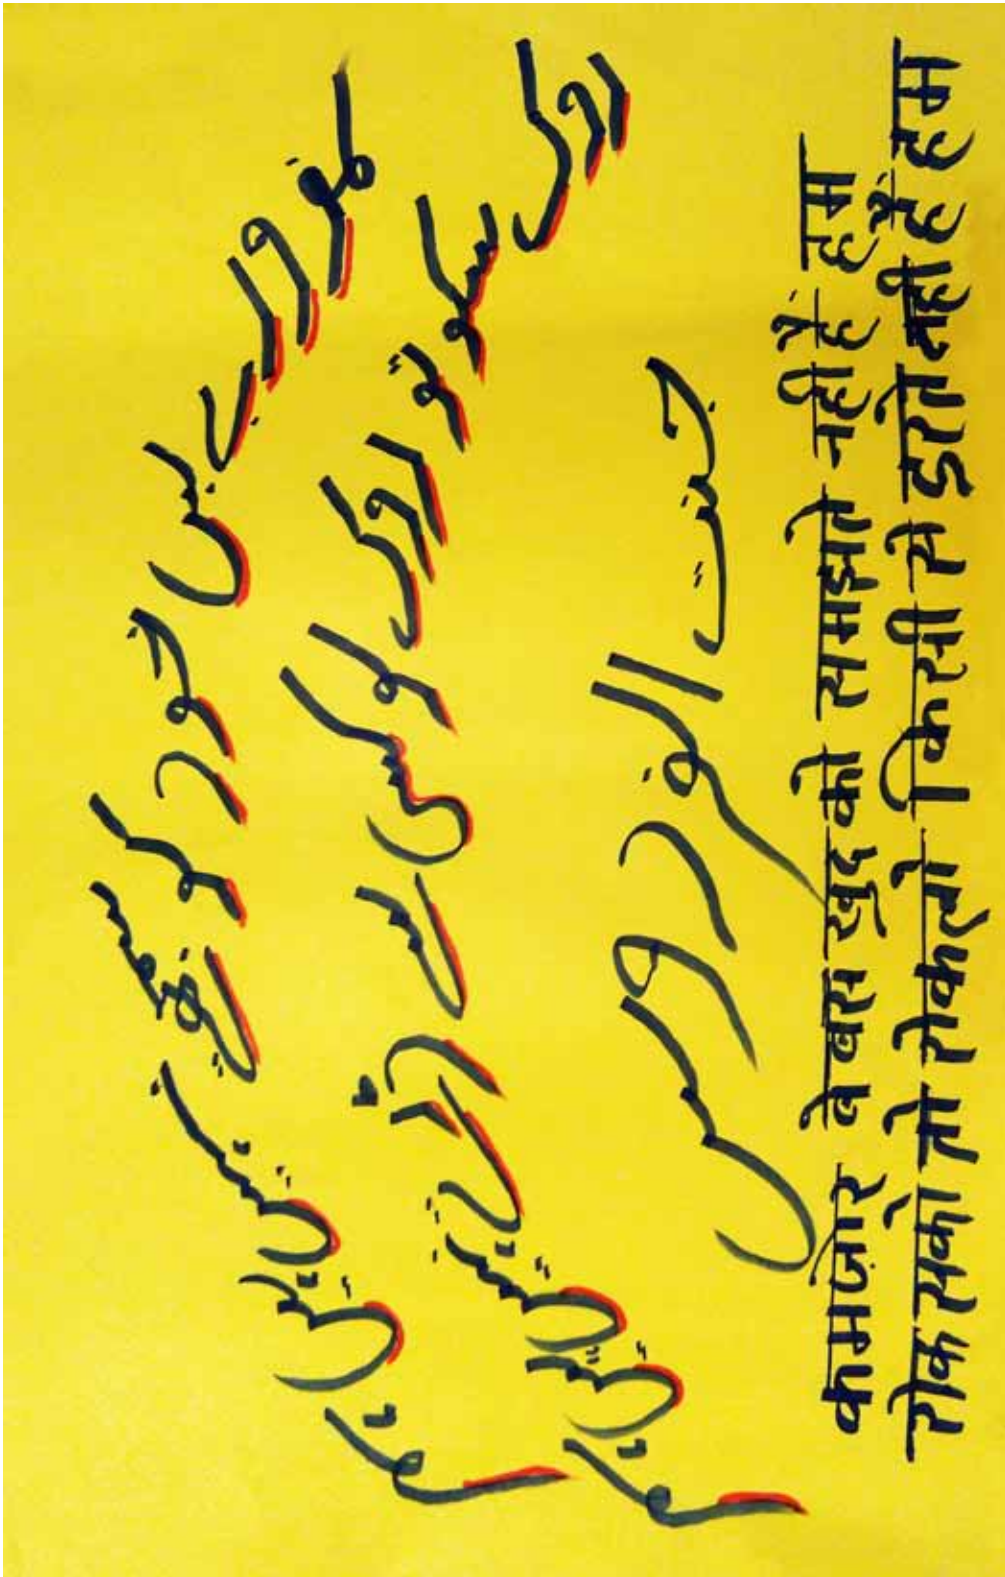 کمزور بے بس خود کو سمجھتے نہیں ہیں ہم
روک سکو تو روک لو کسی سے ڈرتے نہیں ہیں ہم
جنت الفردوس
कमज़ोर वेवस खुद को समझते नही हैं हम
रोक सको तो रोकलो किसी से डरते नही हैं हम